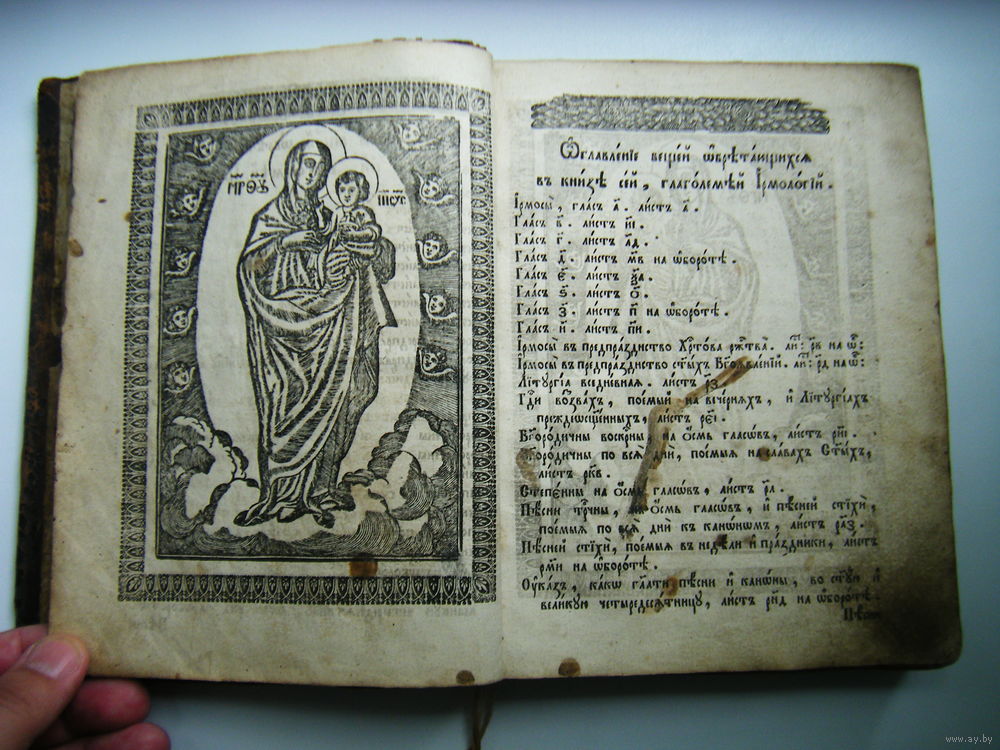 МР҃ ΘУ҃
ІИС҃ ХС҃
Ѡ҆главле́нїе веще́й ѡ҆брѣта́ющихсѧ
въ кни́зѣ се́й , глаго́лемѣй І҆рмоло́гїй .
І҆рмосы̀ , гла́съ а҃ . ли́стъ а҃ .
Гла́съ в҃ . ли́стъ
Гла́съ г҃ . ли́стъ
Гла́съ д҃ . ли́стъ м҃в на ѡ҆боро́тѣ .
Гла́съ є҃ . ли́стъ
Гла́съ ѕ҃ . ли́стъ о҃ .
Гла́съ з҃ . ли́стъ п҃ на ѡ҆боро́тѣ .
Гла́съ и҃ . ли́стъ п҃и .
І҆рмосы̀ въ предпра́зднство Хрⷭ҇то́ва ржⷭ҇тва̀ . ли : р҃в на ѡ :
І҆рмосы̀ въ предпра́зднство ст҃ы́хъ Бг҃оѧвле́нїй . ли : р҃д на ѡ :
Лїтꙋргі́а вседне́внаѧ . ли́стъ р҃з .
Гдⷭ҇и воззва́хъ , пое́мый на вече́рнѧхъ , и҆ Лїтꙋргі́ахъ
преждеѡсщ҃е́нныхъ , ли́стъ
Бг҃оро́дичны воскрⷭ҇ны на ѻ҆́смь гласѡ́въ , ли́стъ р҃и .
Бг҃оро́дичны по всѧ̑ дни̑ , пое́мыѧ на сла́вахъ Ст҃ы́хъ ,
ли́стъ рк҃в .
Степе́нны на ѻ҆́смь гласѡ́въ , ли́стъ р҃л .
Пѣ̑сни трⷪ҇чны , на ѻ҆́смь гласѡ́въ , и҆ пѣ́сней стїхѝ ,
пое́мыѧ по всѧ̑ дни̑ къ канѡ́нѡмъ , ли́стъ
Пѣ́сней стїхѝ , пое́мыѧ въ недѣ́ли и҆ пра́здники , ли́стъ
рм҃и на ѡ҆боро́тѣ .
Оу҆ка́зъ , ка́кѡ гл҃а́ти пѣ̑сни и҆ канѡ́ны , во ст҃ꙋ́ю и҆
вели́кꙋю четыредесѧ́тницꙋ , ли́стъ рн҃д на ѡ҆боро́тѣ .
Пѣ̑сни
www.ay.by